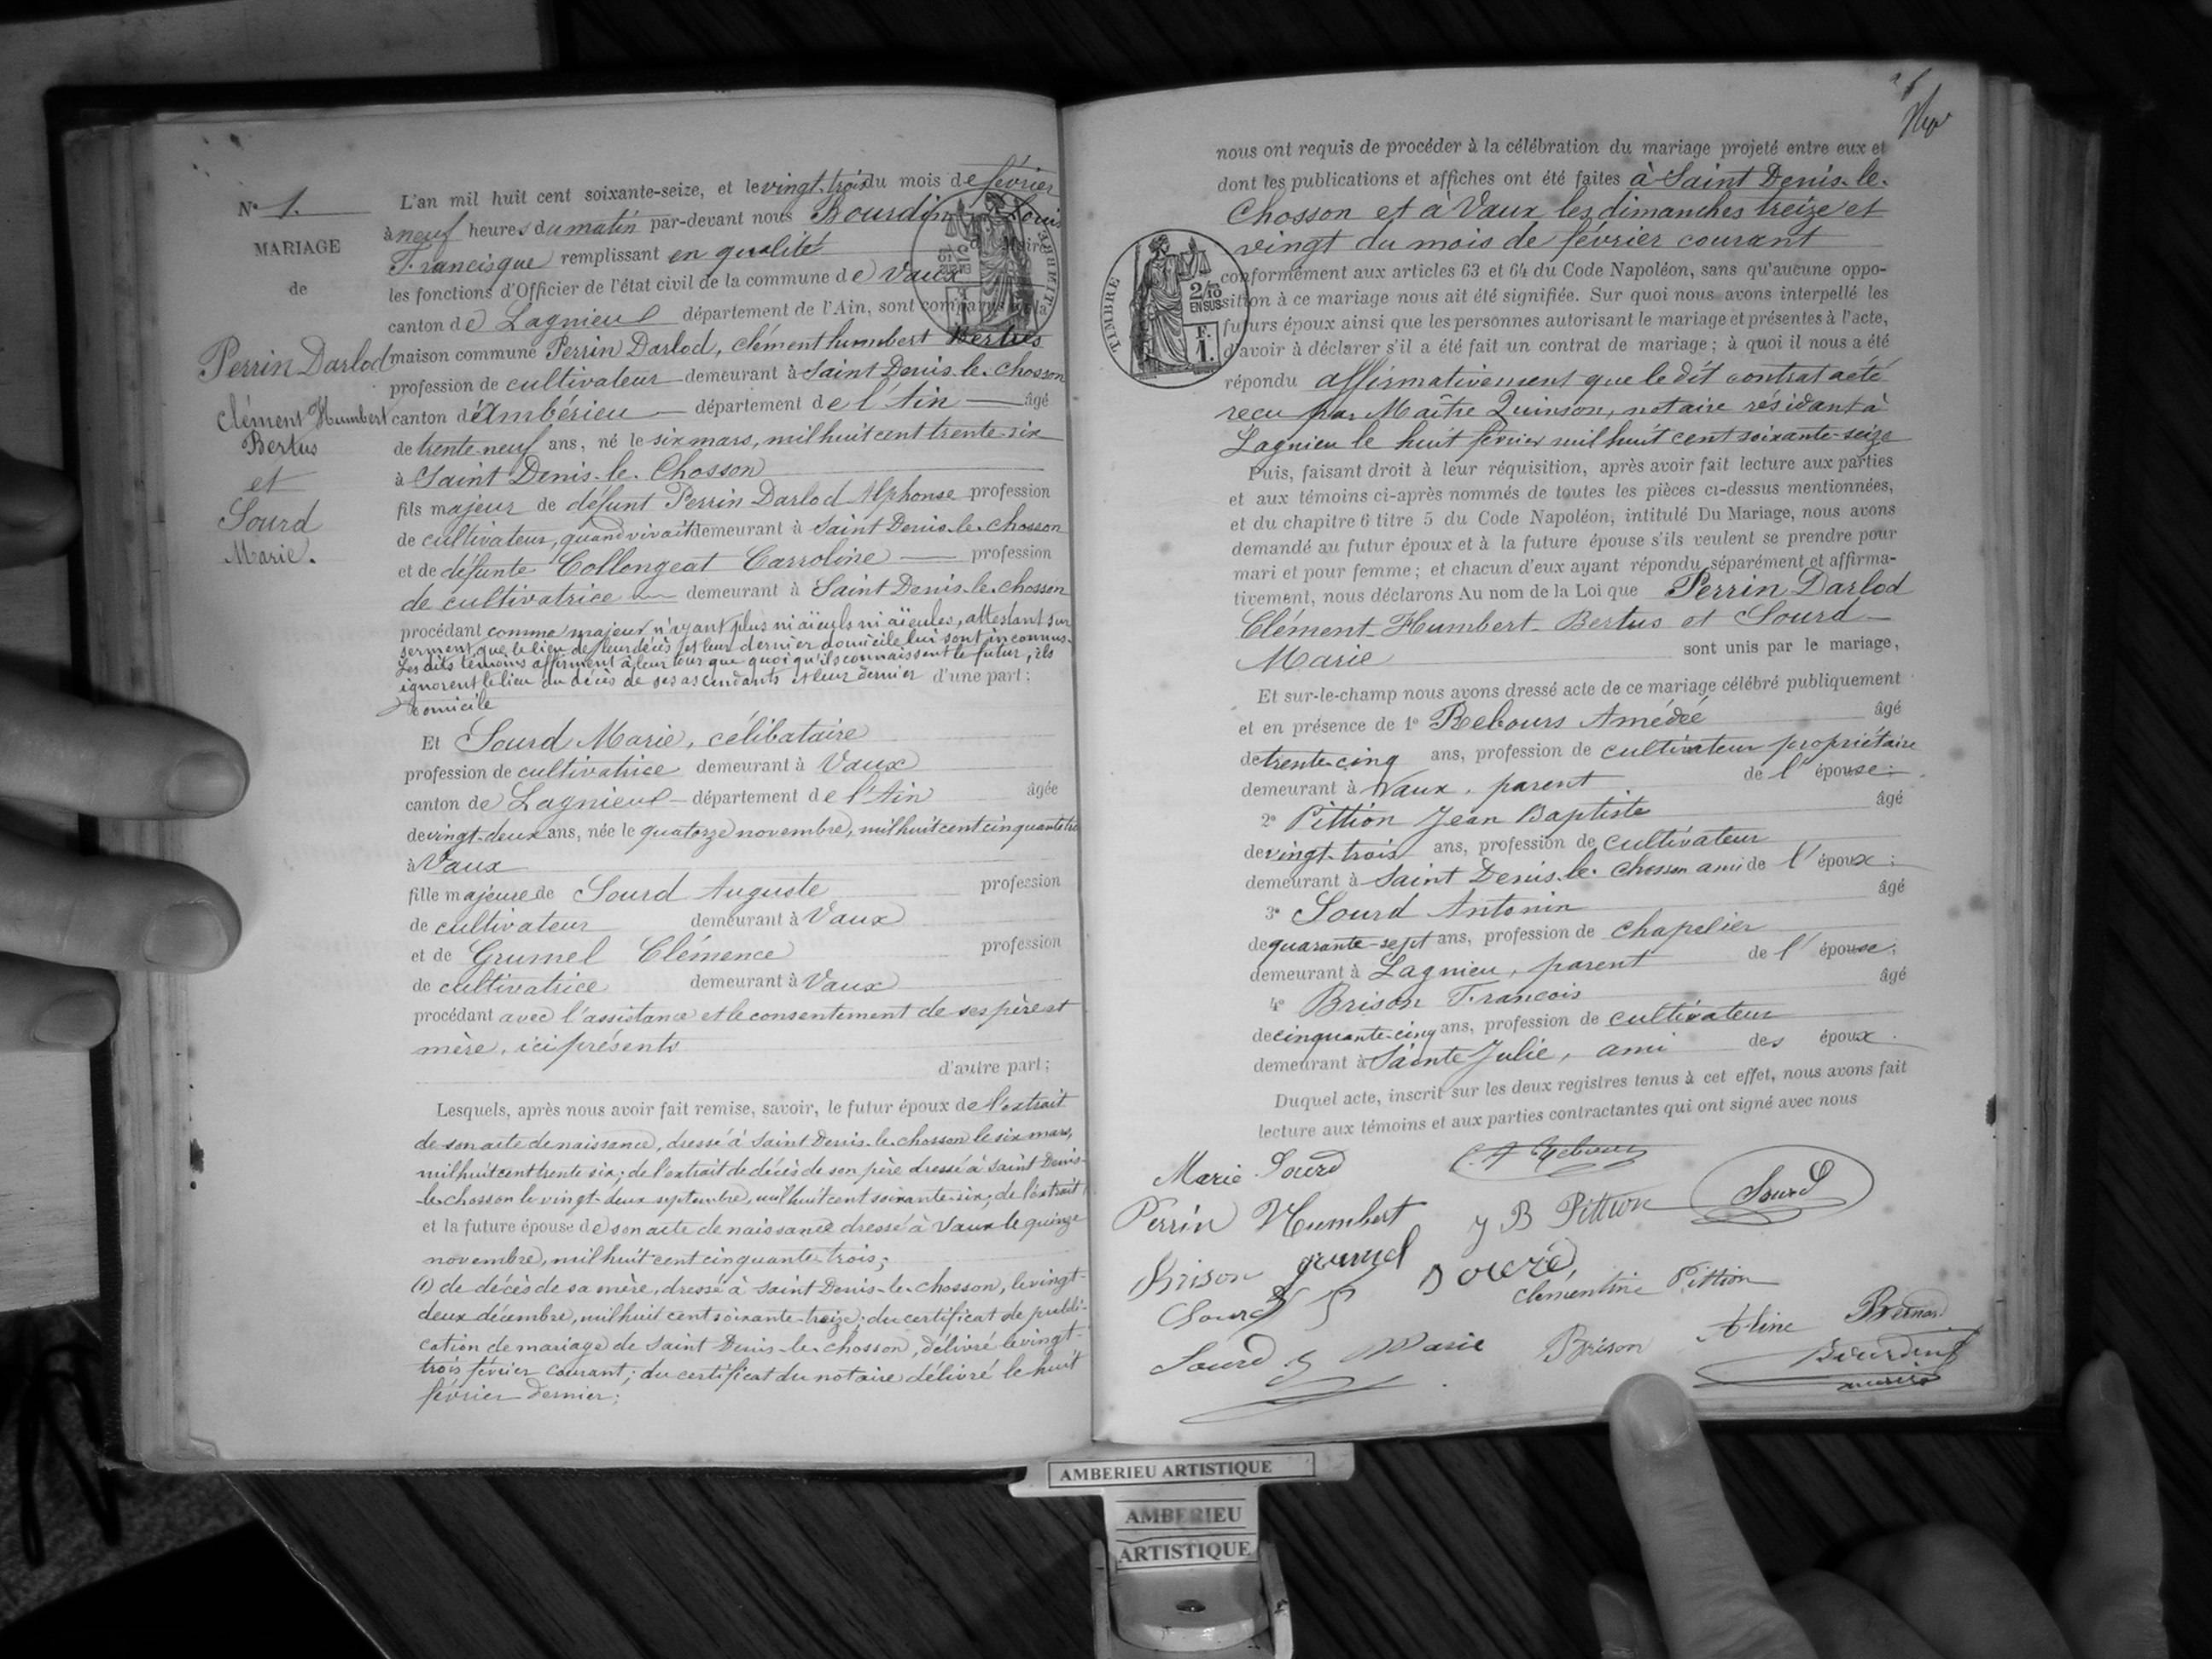 N° 1.
MARIAGE
de
Perrin Darlod
Clément Humbert
Bertus
et
Sourd
Marie.
L'an mil huit cent soixante-seize, et le vingt-trois du mois de février
à neuf heures du matin par-devant nous Bourdin Louis
Francisque remplissant en qualité de Maire
les fonctions d'Officier de l'état civil de la commune de Vaux
canton de Lagnieu département de l'Ain, sont comparus à la
maison commune Perrin Darlod, Clément humbert Bertus
profession de cultivateur demeurant à Saint Denis-le-Chosson
canton d'Ambérieu département de l'Ain âgé
de trente-neuf ans, né le six mars, mil huit cent trente-six
à Saint Denis-le-Chosson
fils majeur de défunt Perrin Darlod Alphonse profession
de cultivateur, quand vivait demeurant à Saint Denis-le-Chosson
et de défunte Collongeat Carroline profession
de cultivatrice demeurant à Saint Denis-le-Chosson
procédant comme majeur n'ayant plus ni aïeuls ni aïeules, attestant sur
serment que le lieu de leur décès et leur dernier domicile lui sont inconnus.
Les dits témoins affirment à leur tour que quoi qu'ils connaissent le futur, ils
ignorent le lieu du décès de ses ascendants et leur dernier d'une part;
domicile
Et Sourd Marie, célibataire
profession de cultivatrice demeurant à Vaux
canton de Lagnieu département de l'Ain âgée
de vingt-deux ans, née le quatorze novembre, mil huit cent cinquante tro
à Vaux
fille majeure de Sourd Auguste profession
de cultivateur demeurant à Vaux
et de Grumel Clémence profession
de cultivatrice demeurant à Vaux
procédant avec l'assistance et le consentement de ses père et
mère, ici présents
d'autre part;
Lesquels, après nous avoir fait remise, savoir, le futur époux de l'extrait
de son acte de naissance, dressé à Saint Denis-le-chosson le six mars,
mil huit cent trente six; de l'extrait de décès de son père dressé à Saint Denis-
le-chosson le vingt-deux septembre, mil huit cent soixante-six; de l'extrait
et la future épouse de son acte de naissance dressé à Vaux le quinze
novembre, mil huit cent cinquante trois;
(1) de décès de sa mère, dressé à Saint Denis-le-chosson, le vingt-
deux décembre, mil huit cent soixante-treize; du certificat de publi-
cation de mariage de Saint Denis-le-chosson, délivré le vingt-
trois février courant; du certificat du notaire délivré le huit
février dernier;
nous ont requis de procéder à la célébration du mariage projeté entre eux et
dont les publications et affiches ont été faites à Saint Denis-le-
Chosson et à Vaux les dimanches treize et
vingt du mois de février courant
TIMBRE
2/10
EN SUS
F.
1.
conformément aux articles 63 et 64 du Code Napoléon, sans qu'aucune oppo-
sition à ce mariage nous ait été signifiée. Sur quoi nous avons interpellé les
futurs époux ainsi que les personnes autorisant le mariage et présentes à l'acte,
d'avoir à déclarer s'il a été fait un contrat de mariage; à quoi il nous a été
répondu affirmativement que le dit contrat a été
reçu par Maître Quinson, notaire résidant à
Lagnieu le huit février mil huit cent soixante-seize
Puis, faisant droit à leur réquisition, après avoir fait lecture aux parties
et aux témoins ci-après nommés de toutes les pièces ci-dessus mentionnées,
et du chapitre 6 titre 5 du Code Napoléon, intitulé Du Mariage, nous avons
demandé au futur époux et à la future épouse s'ils veulent se prendre pour
mari et pour femme; et chacun d'eux ayant répondu séparément et affirma-
tivement, nous déclarons Au nom de la Loi que Perrin Darlod
Clément-Humbert-Bertus et Sourd
Marie sont unis par le mariage,
Et sur-le-champ nous avons dressé acte de ce mariage célébré publiquement
et en présence de 1° Rebours Amédée âgé
de trente-cinq ans, profession de cultivateur propriétaire
demeurant à Vaux, parent de l'épouse;
2° Pittion Jean Baptiste âgé
de vingt-trois ans, profession de cultivateur
demeurant à Saint Denis-le-Chosson ami de l'époux;
3° Sourd Antonin âgé
de quarante-sept ans, profession de chapelier
demeurant à Lagnieu, parent de l'épouse;
4° Brison François âgé
de cinquante-cinq ans, profession de cultivateur
demeurant à Sainte Julie, ami des époux.
Duquel acte, inscrit sur les deux registres tenus à cet effet, nous avons fait
lecture aux témoins et aux parties contractantes qui ont signé avec nous
Marie Sourd
Perrin Humbert J B Pittion Sourd
Brison grumel
Clémentine Pittion
Sourd Marie Brison Aline
Bourdin
AMBERIEU ARTISTIQUE
AMBERIEU
ARTISTIQUE